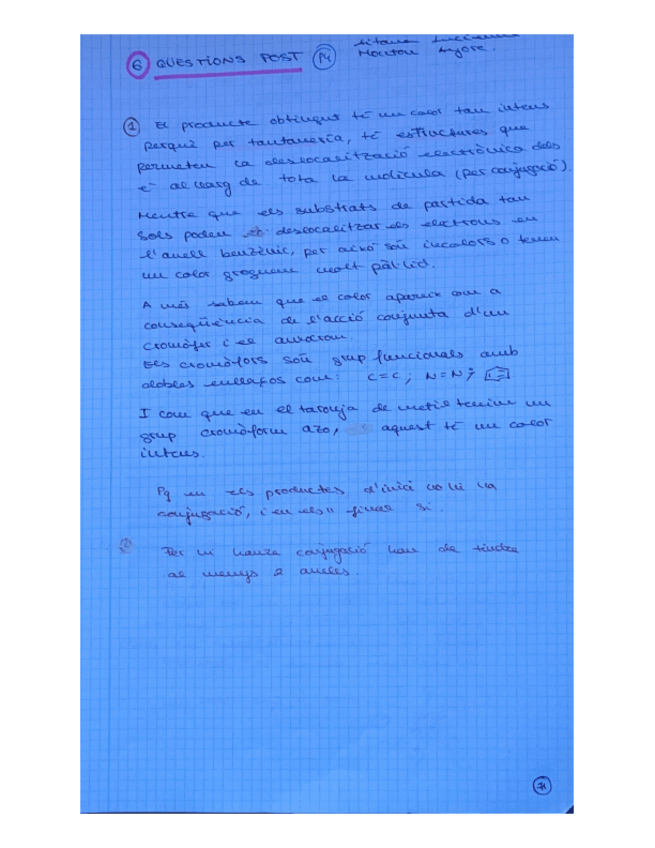 6 QUESTIONS POST P4
1 El producte obtingut té un color tan intens
perquè per tautomeria, té estructures que
permeten la deslocalització electrònica dels
e- al llarg de tota la molècula (per conjugació).
Mentre que els substrats de partida tan
sols poden deslocalitzar els electrons en
l'anell benzènic, per això són incolors o tenen
un color groguenc molt pàl·lid.
A més sabem que el color apareix com a
conseqüència de l'acció conjunta d'un
cromòfor i el auxocrom.
Els cromòfors són grup funcionals amb
dobles enllaços com: C=C ; N=N ;
I com que en el taronja de metil tenim un
grup cromòform azo, aquest té un color
intens.
Pq en els productes d'inici no hi ha
conjugació, i en els " finals si.
Per hi hauza conjugació han de tindre
al menys 2 anells.